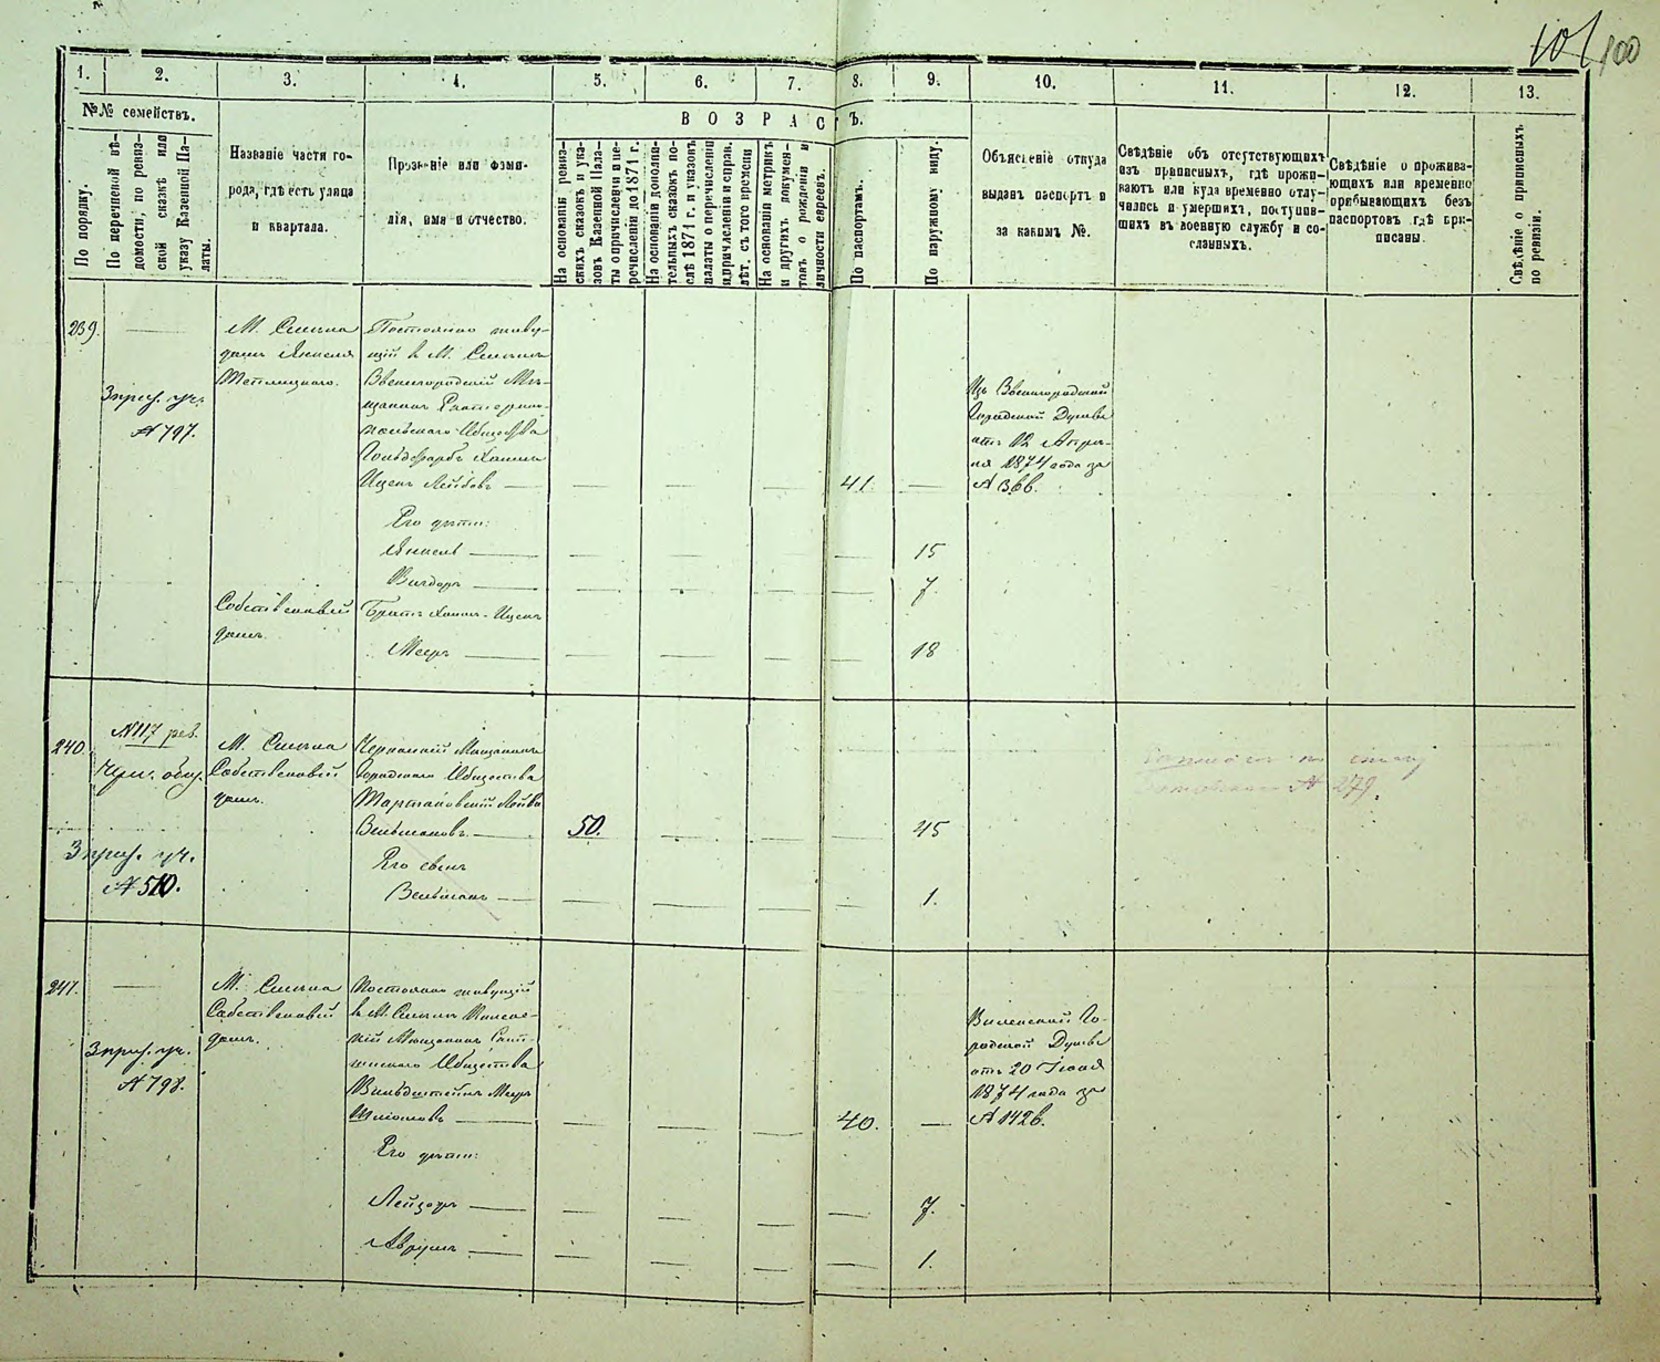 101 100
1. 2. 3. 4. 5. 6. 7. 8. 9. 10. 11. 12. 13.
№№ семействъ.
По порядку.
По перечневой вѣ-
домости, по ревиз-
ской сказкѣ или
указу Казенной Па-
латы.
Названіе части го-
рода, гдѣ есть улица
и квартала.
Прозвніе или фами-
лія, имя и отчество.
ВОЗРАСТЪ.
На основаніи ревиз-
скихъ сказокъ и ука-
зовъ Казенной Пала-
ты о причисленіи и пе-
речисленіи до 1871 г.
На основаніи дополни-
тельныхъ сказокъ по-
слѣ 1871 г. и указовъ
палаты о перечисленіи
и причисленіи и справ.
лѣт. съ того времени
На основаніи метрикъ
и другихъ докумен-
товъ о рожденіи и
личности евреевъ.
По паспортамъ.
По наружному виду.
Объясненіе откуда
выданъ паспортъ и
за какимъ №.
Свѣдѣніе объ отсутствующихъ
изъ приписныхъ, гдѣ прожи-
ваютъ или куда временно отлу-
чились и умершихъ, поступив-
шихъ въ военную службу и со-
сланныхъ.
Свѣдѣніе о прожива-
ющихъ или временно
прибывающихъ безъ
паспортовъ гдѣ при-
писаны.
Свѣдѣніе о приписныхъ
по ревизіи.
239.
3 приз. уч.
№ 797.
М. Смѣла
домъ Янкеля
Теплицкаго.
Постоянно живу-
щій в М. Смѣлѣ
Звенигородскій Мѣ-
щанинъ Екатерино-
польскаго Общества
Гольдфарбъ Хаимъ
Ицекъ Лейбовъ
41.
Изъ Звенигородской
Городской Думы
отъ 12 Апрѣ-
ля 1874 года за
№ 366.
Его дѣти:
Янкель 15
Вигдоръ 7.
Собственный
домъ.
Братъ Хаимъ-Ицека
Мееръ 18
240.
№ 117 рев.
Чер. общ.
3 приз. уч.
№ 510.
М. Смѣла
Собственный
домъ.
Черкаскій Мѣщанинъ
Городскаго Общества
Тартаковскій Лейба
Вельмановъ 50. 45
Его сынъ
Вельманъ 1.
№ 279.
241.
3 приз. уч.
№ 798.
М. Смѣла
Собственный
домъ.
Постоянно живущій
в М. Смѣлѣ
Мѣщанинъ
Общества
Вильдштейнъ Мееръ
40.
Виленской Го-
родской Думы
отъ 20 Іюня
1874 года за
№ 1426.
Его дѣти:
Лейзоръ 7.
Аврумъ 1.